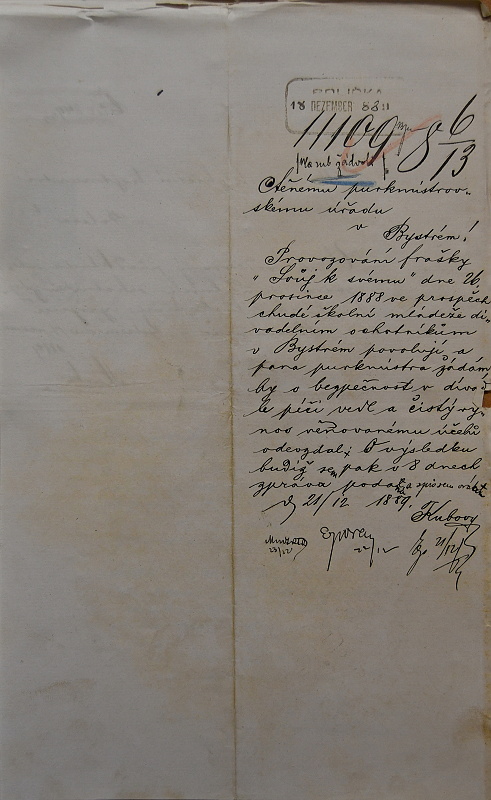 POLIČKA
18 DEZEMBER 88
11109 8 6/13
Ctěnému purkmistrov-
skému úřadu
v
Bystrém!
Provozování frašky
"Svůj k svému" dne 26.
prosince 1888 ve prospěch
chudé školní mládeže di-
vadelním ochotníkům
v Bystrém povoluji a
pana purkmistra žádám
by o bezpečnost v divad
le péči vedl a čistý vý-
nos věnovanému účelu
odevzdal; O výsledku
budiž sem pak v 8 dnech
zpráva podána a
21/12 188
Kubový
23/12
22/12
21/12